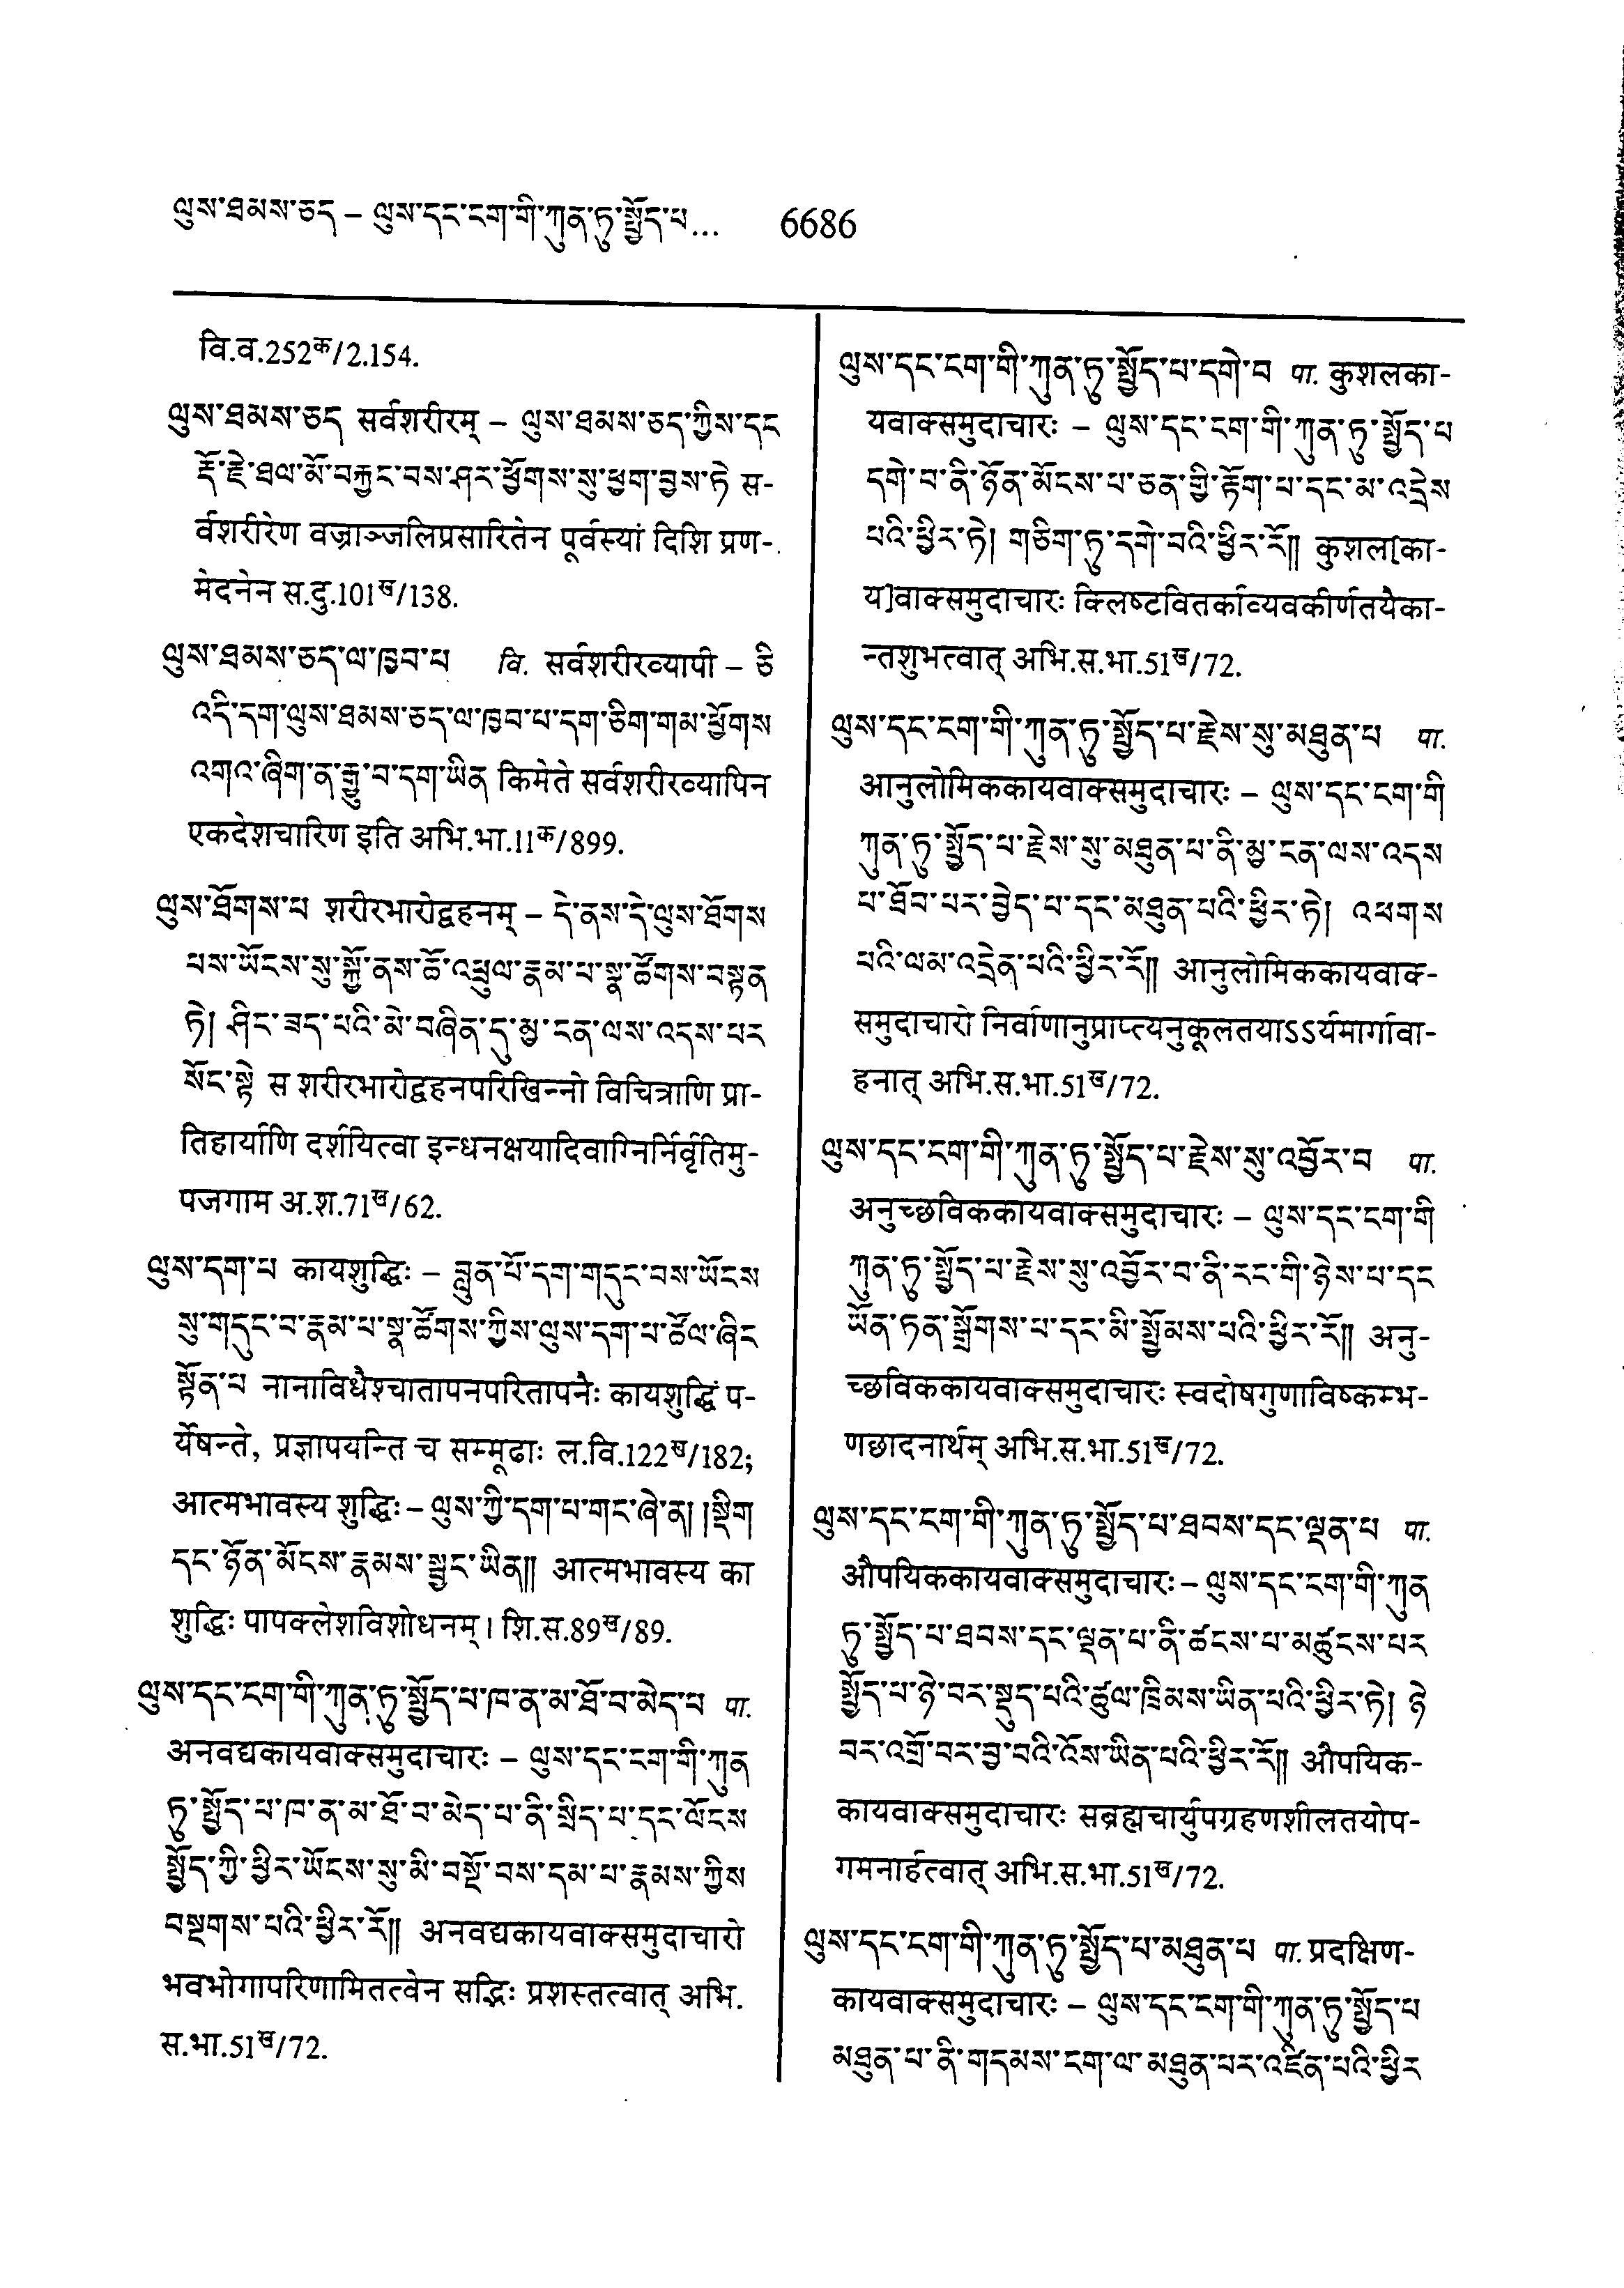 ལུས་ཐམས་ཅད – ལུས་དང་ངག་གི་ཀུན་ཏུ་སྤྱོད་པ... 6686
वि.व.252क/2.154.
ལུས་ཐམས་ཅད सर्वशरीरम् – ལུས་ཐམས་ཅད་ཀྱིས་དང
རྡོ་རྗེ་ཐལ་མོ་བརྐྱང་བས་ཤར་ཕྱོགས་སུ་ཕྱག་བྱས་ཏེ स-
र्वशरीरेण वज्राञ्जलिप्रसारितेन पूर्वस्यां दिशि प्रण-
मेदनेन स.दु.101ख/138.
ལུས་ཐམས་ཅད་ལ་ཁྱབ་པ वि. सर्वशरीरव्यापी – ཅི
འདི་དག་ལུས་ཐམས་ཅད་ལ་ཁྱབ་པ་དག་ཅིག་གམ་ཕྱོགས
འགའ་ཞིག་ན་རྒྱུ་བ་དག་ཡིན किमेते सर्वशरीरव्यापिन
एकदेशचारिण इति अभि.भा.11क/899.
ལུས་ཐོགས་པ शरीरभारोद्वहनम् – དེ་ནས་དེ་ལུས་ཐོགས
པས་ཡོངས་སུ་སྐྱོ་ནས་ཆོ་འཕྲུལ་རྣམ་པ་སྣ་ཚོགས་བསྟན
ཏེ། ཤིང་ཟད་པའི་མེ་བཞིན་དུ་མྱ་ངན་ལས་འདས་པར
སོང་སྟེ स शरीरभारोद्वहनपरिखिन्नो विचित्राणि प्रा-
तिहार्याणि दर्शयित्वा इन्धनक्षयादिवाग्निर्निर्वृतिमु-
पजगाम अ.श.71ख/62.
ལུས་དག་པ कायशुद्धिः – བླུན་པོ་དག་གདུང་བས་ཡོངས
སུ་གདུང་བ་རྣམ་པ་སྣ་ཚོགས་ཀྱིས་ལུས་དག་པ་ཚོལ་ཞིང
སྟོན་པ नानाविधैश्चातापनपरितापनैः कायशुद्धिं प-
र्येषन्ते, प्रज्ञापयन्ति च सम्मूढाः ल.वि.122ख/182;
आत्मभावस्य शुद्धिः – ལུས་ཀྱི་དག་པ་གང་ཞེ་ན། །སྡིག
དང་ཉོན་མོངས་རྣམས་སྦྱང་ཡིན།། आत्मभावस्य का
शुद्धिः पापक्लेशविशोधनम्। शि.स.89ख/89.
ལུས་དང་ངག་གི་ཀུན་ཏུ་སྤྱོད་པ་ཁ་ན་མ་ཐོ་བ་མེད་པ पा.
अनवद्यकायवाक्समुदाचारः – ལུས་དང་ངག་གི་ཀུན
ཏུ་སྤྱོད་པ་ཁ་ན་མ་ཐོ་བ་མེད་པ་ནི་སྲིད་པ་དང་ལོངས
སྤྱོད་ཀྱི་ཕྱིར་ཡོངས་སུ་མི་བསྔོ་བས་དམ་པ་རྣམས་ཀྱིས
བསྔགས་པའི་ཕྱིར་རོ།། अनवद्यकायवाक्समुदाचारो
भवभोगापरिणामितत्वेन सद्भिः प्रशस्तत्वात् अभि.
स.भा.51ख/72.
ལུས་དང་ངག་གི་ཀུན་ཏུ་སྤྱོད་པ་དགེ་བ पा. कुशलका-
यवाक्समुदाचारः – ལུས་དང་ངག་གི་ཀུན་ཏུ་སྤྱོད་པ
དགེ་བ་ནི་ཉོན་མོངས་པ་ཅན་གྱི་རྟོག་པ་དང་མ་འདྲེས
པའི་ཕྱིར་ཏེ། གཅིག་ཏུ་དགེ་བའི་ཕྱིར་རོ།། कुशल[का-
य]वाक्समुदाचारः क्लिष्टवितर्काव्यवकीर्णतयैका-
न्तशुभत्वात् अभि.स.भा.51ख/72.
ལུས་དང་ངག་གི་ཀུན་ཏུ་སྤྱོད་པ་རྗེས་སུ་མཐུན་པ पा.
आनुलोमिककायवाक्समुदाचारः – ལུས་དང་ངག་གི
ཀུན་ཏུ་སྤྱོད་པ་རྗེས་སུ་མཐུན་པ་ནི་མྱ་ངན་ལས་འདས
པ་ཐོབ་པར་བྱེད་པ་དང་མཐུན་པའི་ཕྱིར་ཏེ། འཕགས
པའི་ལམ་འདྲེན་པའི་ཕྱིར་རོ།། आनुलोमिककायवाक्-
समुदाचारो निर्वाणानुप्राप्त्यनुकूलतयाऽऽर्यमार्गावा-
हनात् अभि.स.भा.51ख/72.
ལུས་དང་ངག་གི་ཀུན་ཏུ་སྤྱོད་པ་རྗེས་སུ་འབྱོར་བ पा.
अनुच्छविककायवाक्समुदाचारः – ལུས་དང་ངག་གི
ཀུན་ཏུ་སྤྱོད་པ་རྗེས་སུ་འབྱོར་བ་ནི་རང་གི་ཉེས་པ་དང
ཡོན་ཏན་སྒྲོགས་པ་དང་མི་སྤྱོམས་པའི་ཕྱིར་རོ།། अनु-
च्छविककायवाक्समुदाचारः स्वदोषगुणाविष्कम्भ-
णछादनार्थम् अभि.स.भा.51ख/72.
ལུས་དང་ངག་གི་ཀུན་ཏུ་སྤྱོད་པ་ཐབས་དང་ལྡན་པ पा.
औपयिककायवाक्समुदाचारः – ལུས་དང་ངག་གི་ཀུན
ཏུ་སྤྱོད་པ་ཐབས་དང་ལྡན་པ་ནི་ཚངས་པ་མཚུངས་པར
སྤྱོད་པ་ཉེ་བར་སྡུད་པའི་ཚུལ་ཁྲིམས་ཡིན་པའི་ཕྱིར་ཏེ། ཉེ
བར་འགྲོ་བར་བྱ་བའི་འོས་ཡིན་པའི་ཕྱིར་རོ།། औपयिक-
कायवाक्समुदाचारः सब्रह्मचार्युपग्रहणशीलतयोप-
गमनार्हत्वात् अभि.स.भा.51ख/72.
ལུས་དང་ངག་གི་ཀུན་ཏུ་སྤྱོད་པ་མཐུན་པ पा. प्रदक्षिण-
कायवाक्समुदाचारः – ལུས་དང་ངག་གི་ཀུན་ཏུ་སྤྱོད་པ
མཐུན་པ་ནི་གདམས་ངག་ལ་མཐུན་པར་འཛིན་པའི་ཕྱིར